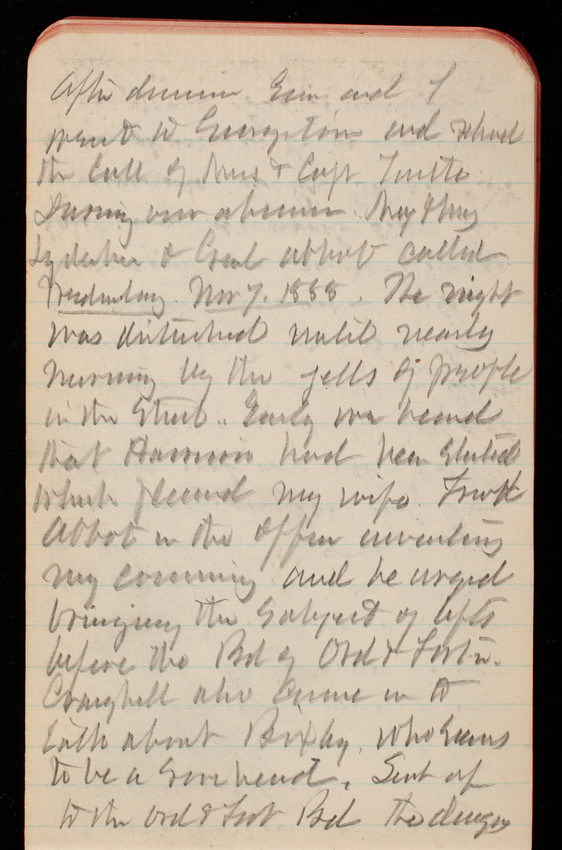 After dinner Gen and I
went to Georgetown and returned
the call of Mrs & Capt Tuttle
During our absence Maj & Mrs
Lydecker & Genl Abbot called
Wednesday Nov 7, 1888. The night
was disturbed until nearly
morning by the yells of people
in the street. Early we heard
that Harrison had been elected
which pleased my wife. Found
Abbot in the office awaiting
my coming and he urged
bringing the subject of lifts
before the Bd of Ord & Fortn.
Craighill also came in to
talk about Bixby, who seems
to be a
to the Ord & Fort Bd the